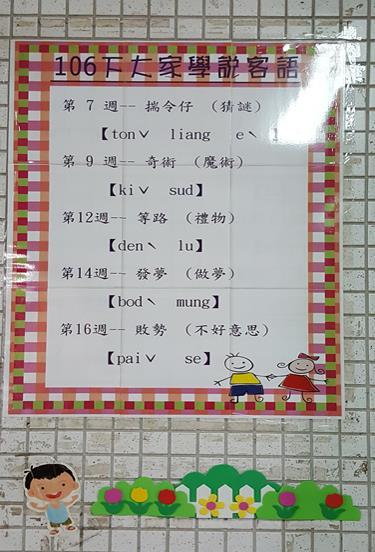 106下大家學說客語
第 7 週-- 揣令仔 （猜謎）
【tonˇ liang eˋ 】
第 9 週-- 奇術 （魔術）
【kiˇ sud】
第12週-- 等路 （禮物）
【denˋ lu】
第14週-- 發夢 （做夢）
【bodˋ mung】
第16週-- 敗勢 （不好意思）
【paiˇ se】